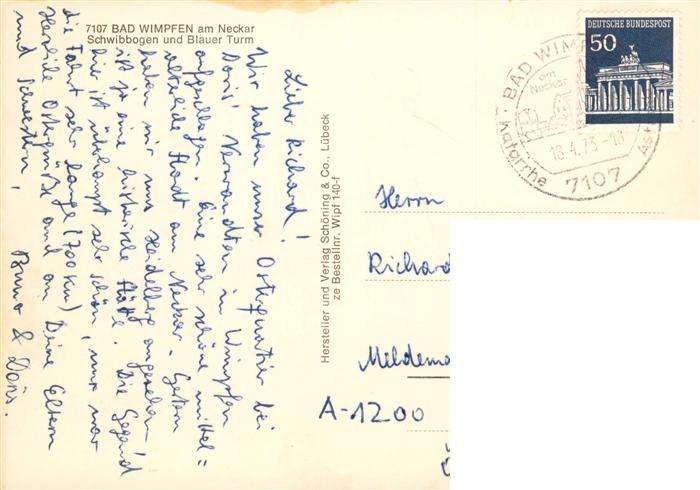 7107 BAD WIMPFEN am Neckar
Schwibbogen und Blauer Turm
Liebe Richard!
Wir haben unser Osterquartier bei
Doris' Verwandten in Wimpfen
aufgeschlagen. Eine sehr schöne mittel=
alterliche Stadt am Neckar. Gestern
haben wir uns Heidelberg angesehen.
ist ja eine historische Stätte. Die Gegend
hier ist überhaupt sehr schön, nur war
die Fahrt sehr lange (700 km)
Herzliche Ostergrüße and an Deine Eltern
und Schwestern,
Bruno & Doris.
Hersteller und Verlag Schöning & Co., Lübeck
ze Bestellnr. Wipf 140-f
DEUTSCHE BUNDESPOST
50
BAD WIMPF
am
Neckar
18.4.73-18
Katarrhe
Ast
7107
Herrn
Richard
Meldema
A-1200